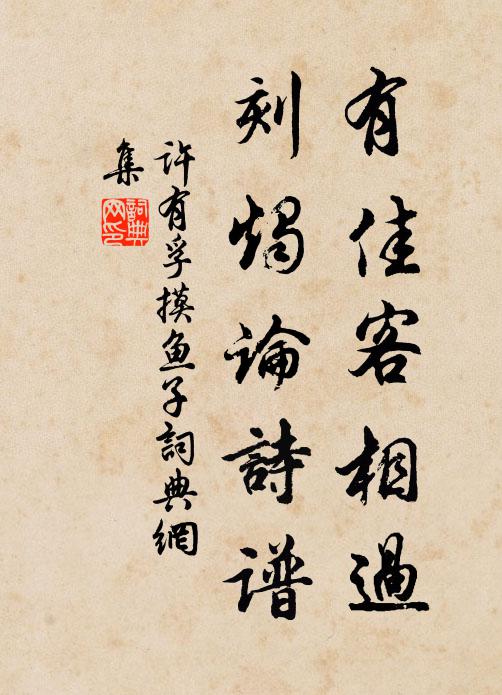 有佳客相過
刻燭論詩譜
許有孚摸鱼子詞典網
集
詞典网印